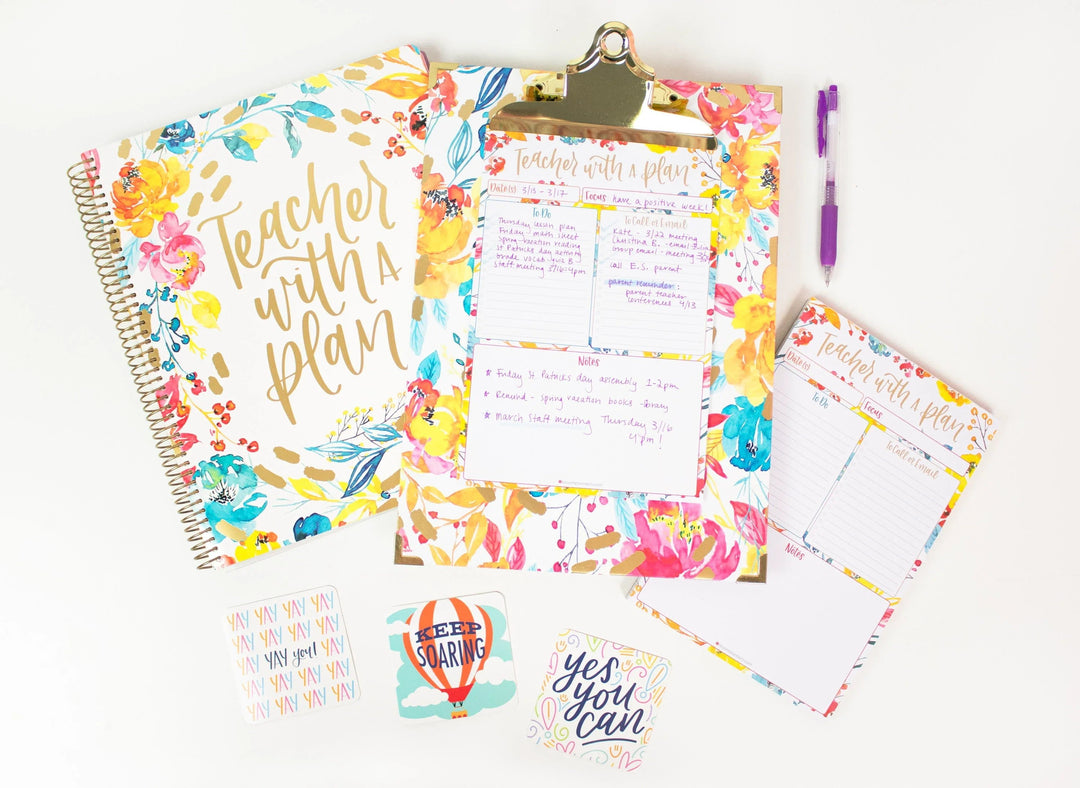 Teacher
with A
plan
Teacher with A plan
Date(s) 3/13 - 3/17
Focus have a positive week!
To Do
Thursday lesson plan
Friday - math sheet
Spring vacation reading
St Patricks day activity
Grade vocab quiz B
Staff meeting 3/16 4pm
To Call or Email
Kate - 3/22 meeting
Christina B. - email
group email - meeting
call E.S. parent
parent reminder:
parent teacher
conferences 4/13
Notes
Friday St Patricks day assembly 1-2pm
Remind - spring vacation books - library
March Staff meeting Thursday 3/16
4pm!
Teacher with A plan
Date(s)
Focus
To Do
To Call or Email
Notes
YAY YAY YAY YAY
YAY YAY YAY YAY
YAY YAY you! YAY
YAY YAY YAY YAY
YAY YAY YAY YAY
KEEP
SOARING
yes
you
can